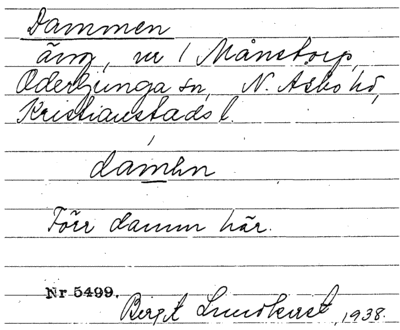 Dammen
äng, nr 1 Månstorp,
Oderljunga sn, N. Åsbo hd,
Kristianstads l.
damən
Förr damm här.
Nr 5499.
Bergit Lundkvist, 1938.